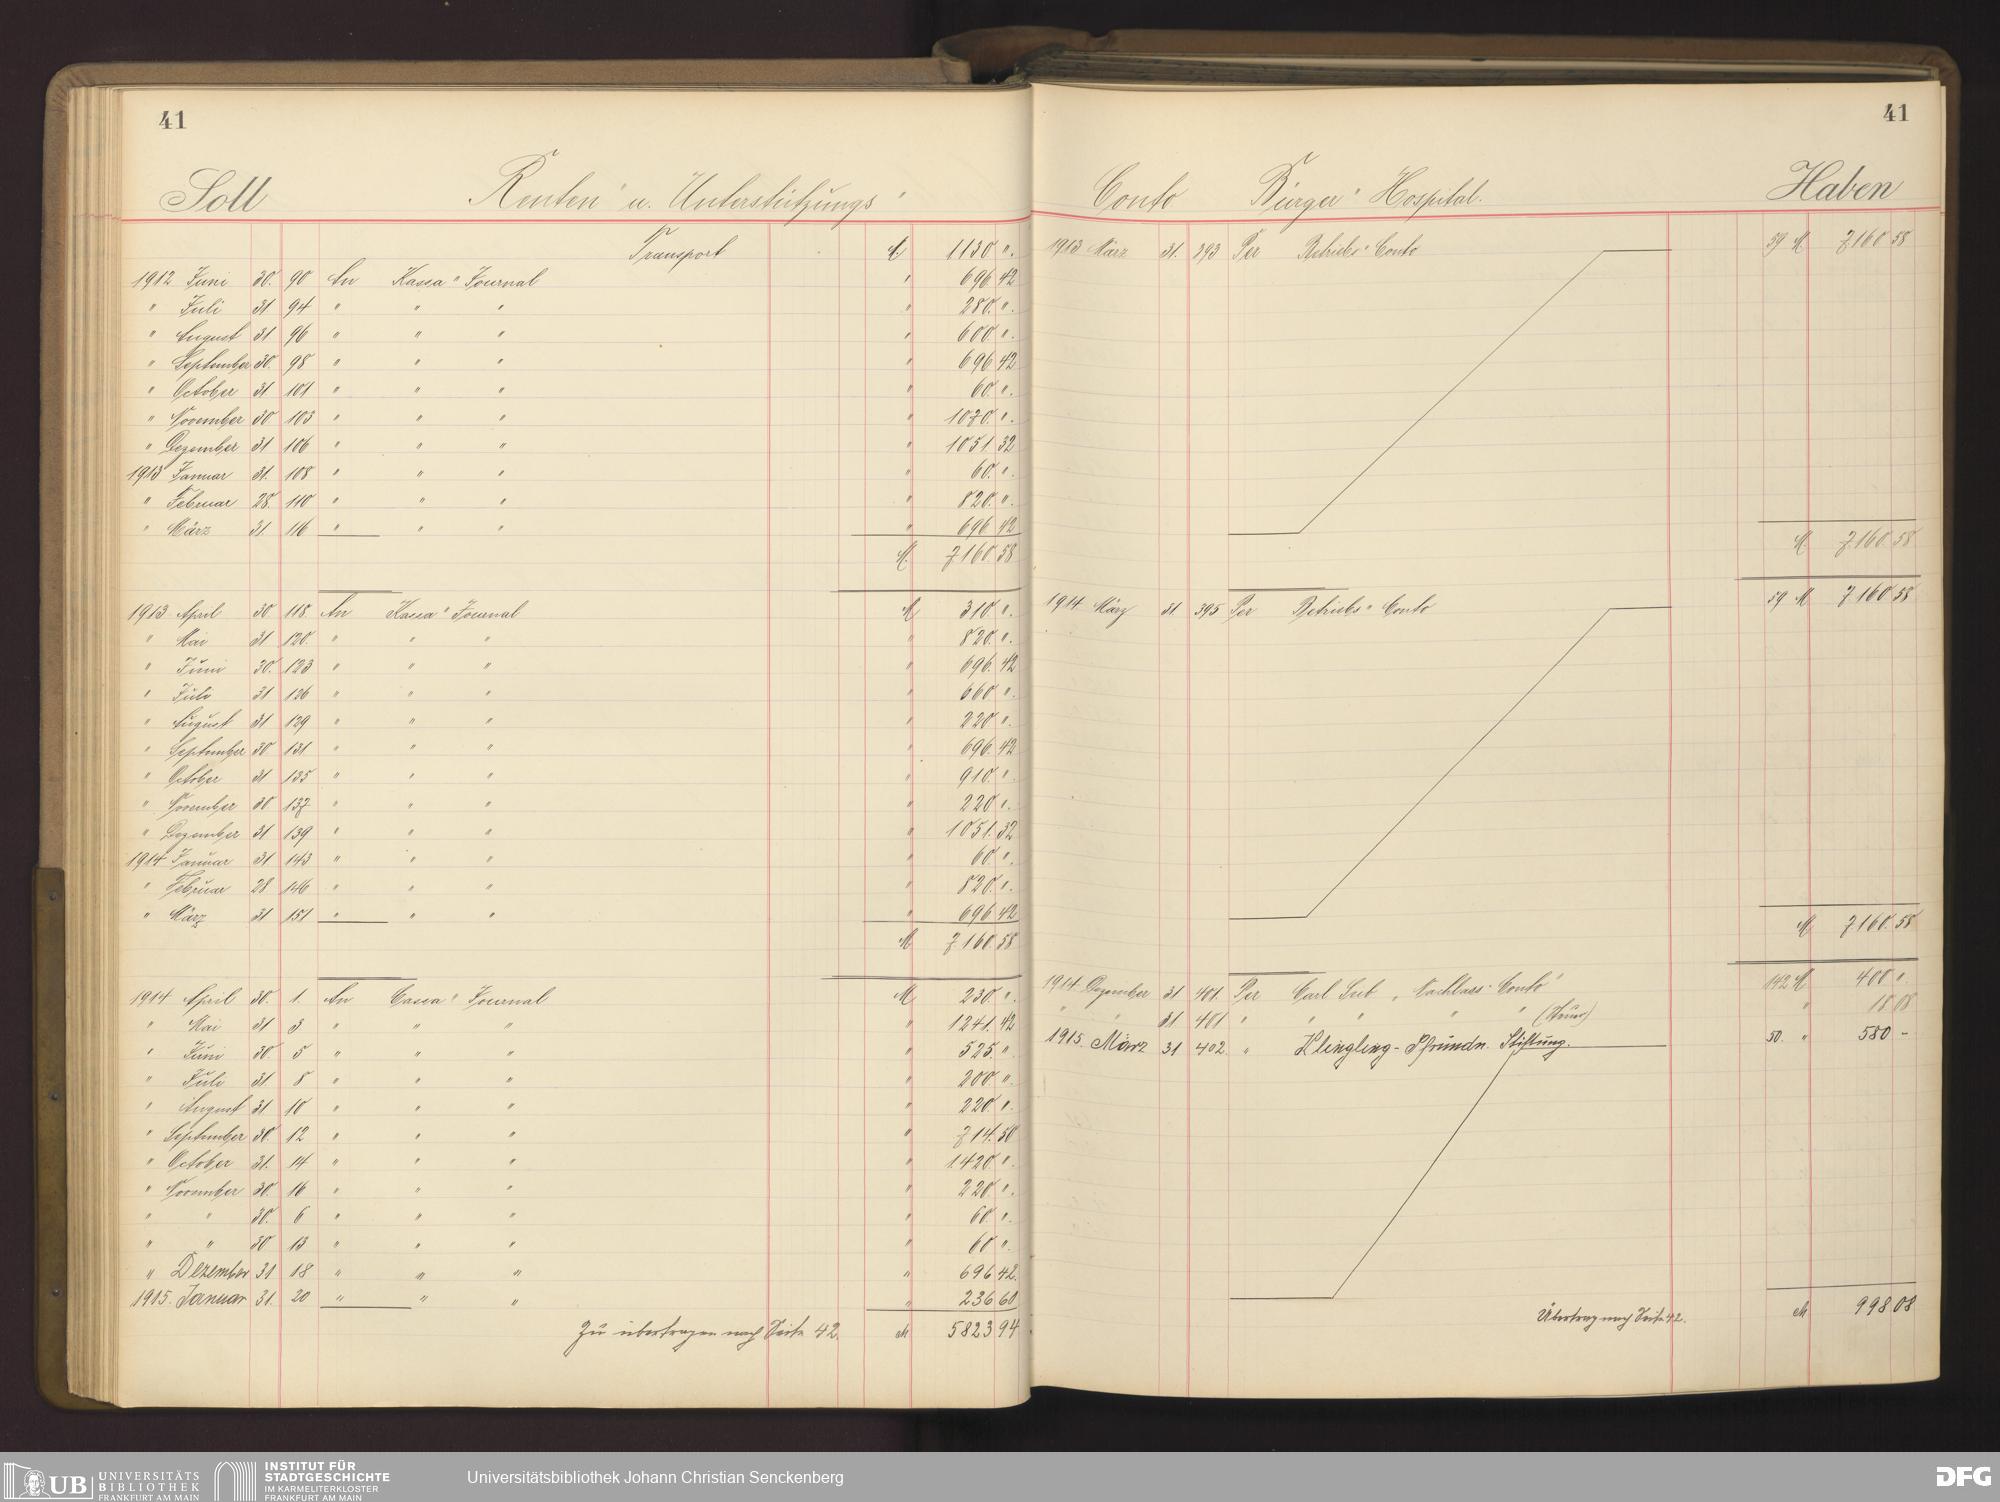 41
Soll Renten- u. Unterstützungs-
Transport M 1130 ".
1912 Juni 30. 90 An Kassa-Journal " 696 42
" Juli 31 94 " " " " 280. ".
" August 31 96 " " " " 600. ".
" September 30. 98 " " " " 696 42
" October 31 101 " " " " 60. ".
" November 30 103 " " " " 1070. ".
" Dezember 31 106 " " " " 1051. 32
1913 Januar 31. 108 " " " " 60. ".
" Februar 28. 110 " " " " 820. ".
" März 31. 116 " " " " 696 42
M. 7160. 58
1913 April 30 118 An Kassa-Journal M 310. ".
" Mai 31 120. " " " " 820. ".
" Juni 30. 123 " " " " 696. 42
" Juli 31 126 " " " " 660 ".
" August 31 129 " " " " 220 ".
" September 30 131 " " " " 696. 42
" October 31 135 " " " " 910. ".
" November 30 137 " " " " 220 ".
" Dezember 31 139 " " " " 1051. 32
1914 Januar 31 143 " " " " 60. ".
" Februar 28 146 " " " " 820. ".
" März 31 151 " " " " 696 42
M 7.160. 58
1914 April 30. 1. An Cassa-Journal M 230. ".
" Mai 31 3 " " " " 1241. 42
" Juni 30. 5 " " " " 525. ".
" Juli 31 8 " " " " 200. ".
" August 31 10 " " " " 220. ".
" September 30. 12 " " " " 714. 50
" October 31. 14 " " " " 1420. ".
" November 30. 16 " " " " 220. ".
" " 30. 6 " " " " 60. ".
" " 30 13 " " " " 60 ".
" Dezember 31 18 " " " " 696 42.
1915. Januar 31. 20 " " " " 236 60
Zu übertragen nach Seite 42. M 5823 94
41
Conto Bürger-Hospital. Haben
1913 März 31. 393 Per Betriebs-Conto 59 M 7160 58
M 7.160. 58
1914 März 31. 395 Per Betriebs-Conto 59 M 7160 58
M 7.160. 58
1914 Dezember 31 401. Per Carl Nachlass-Conto 142 M 400 ".
" " 31 401 " " " " " " 18 08
1915. März 31 402. " Klingling-Pfründn. Stiftung. 50. " 580 -
Übertrag nach Seite 42. M 998 08
UB UNIVERSITÄTS
BIBLIOTHEK
FRANKFURT AM MAIN
INSTITUT FÜR
STADTGESCHICHTE
IM KARMELITERKLOSTER
FRANKFURT AM MAIN
Universitätsbibliothek Johann Christian Senckenberg
DFG